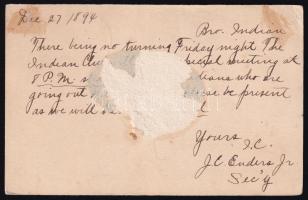 Dec 27 1894
Bro. Indian
There being no turning Friday night The
Indian Clu special meeting at
8 P.M. who are
going out be present
as we will
Yours I.C.
J.C. Enders Jr
Sec'y